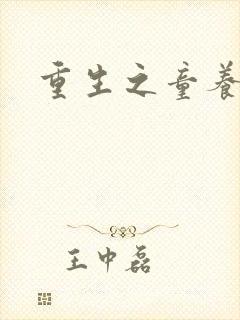 重生之童养
王中磊